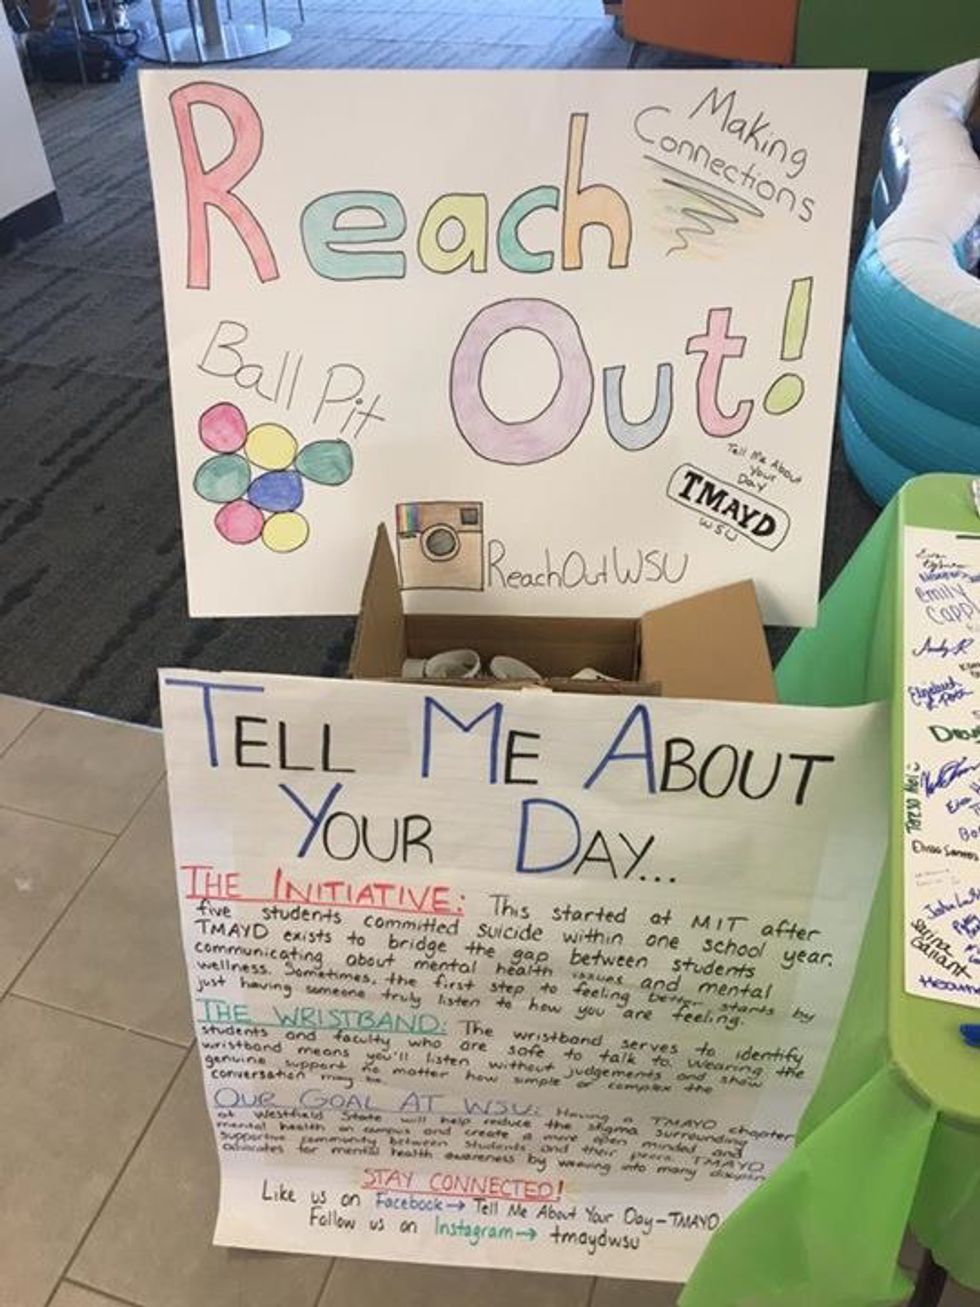 Reach
Making
Connections
Out!
Ball Pit
Tell Me About
Your
Day
TMAYD
WSU
ReachOutWSU
TELL ME ABOUT
YOUR DAY...
THE INITIATIVE: This started at MIT after
five students committed suicide within one school year.
TMAYD exists to bridge the gap between students
communicating about mental health issues and mental
wellness. Sometimes, the first step to feeling better starts by
just having someone truly listen to how you are feeling.
THE WRISTBAND: The wristband serves to identify
students and faculty who are safe to talk to. Wearing the
wristband means you'll listen without judgements and show
genuine support no matter how simple or complex the
conversation may be.
OUR GOAL AT WSU: Having a TMAYD chapter
at Westfield State will help reduce the stigma surrounding
mental health on campus and create a more open minded and
supportive community between students and their peers. TMAYD
advocates for mental health awareness by weaving into many
STAY CONNECTED!
Like us on Facebook→ Tell Me About Your Day-TMAYD
Follow us on Instagram→ tmaydwsu
emily
Capp
Andy R
Elizabeth
Doug
Eliso Santos
John
Serina
Gallant